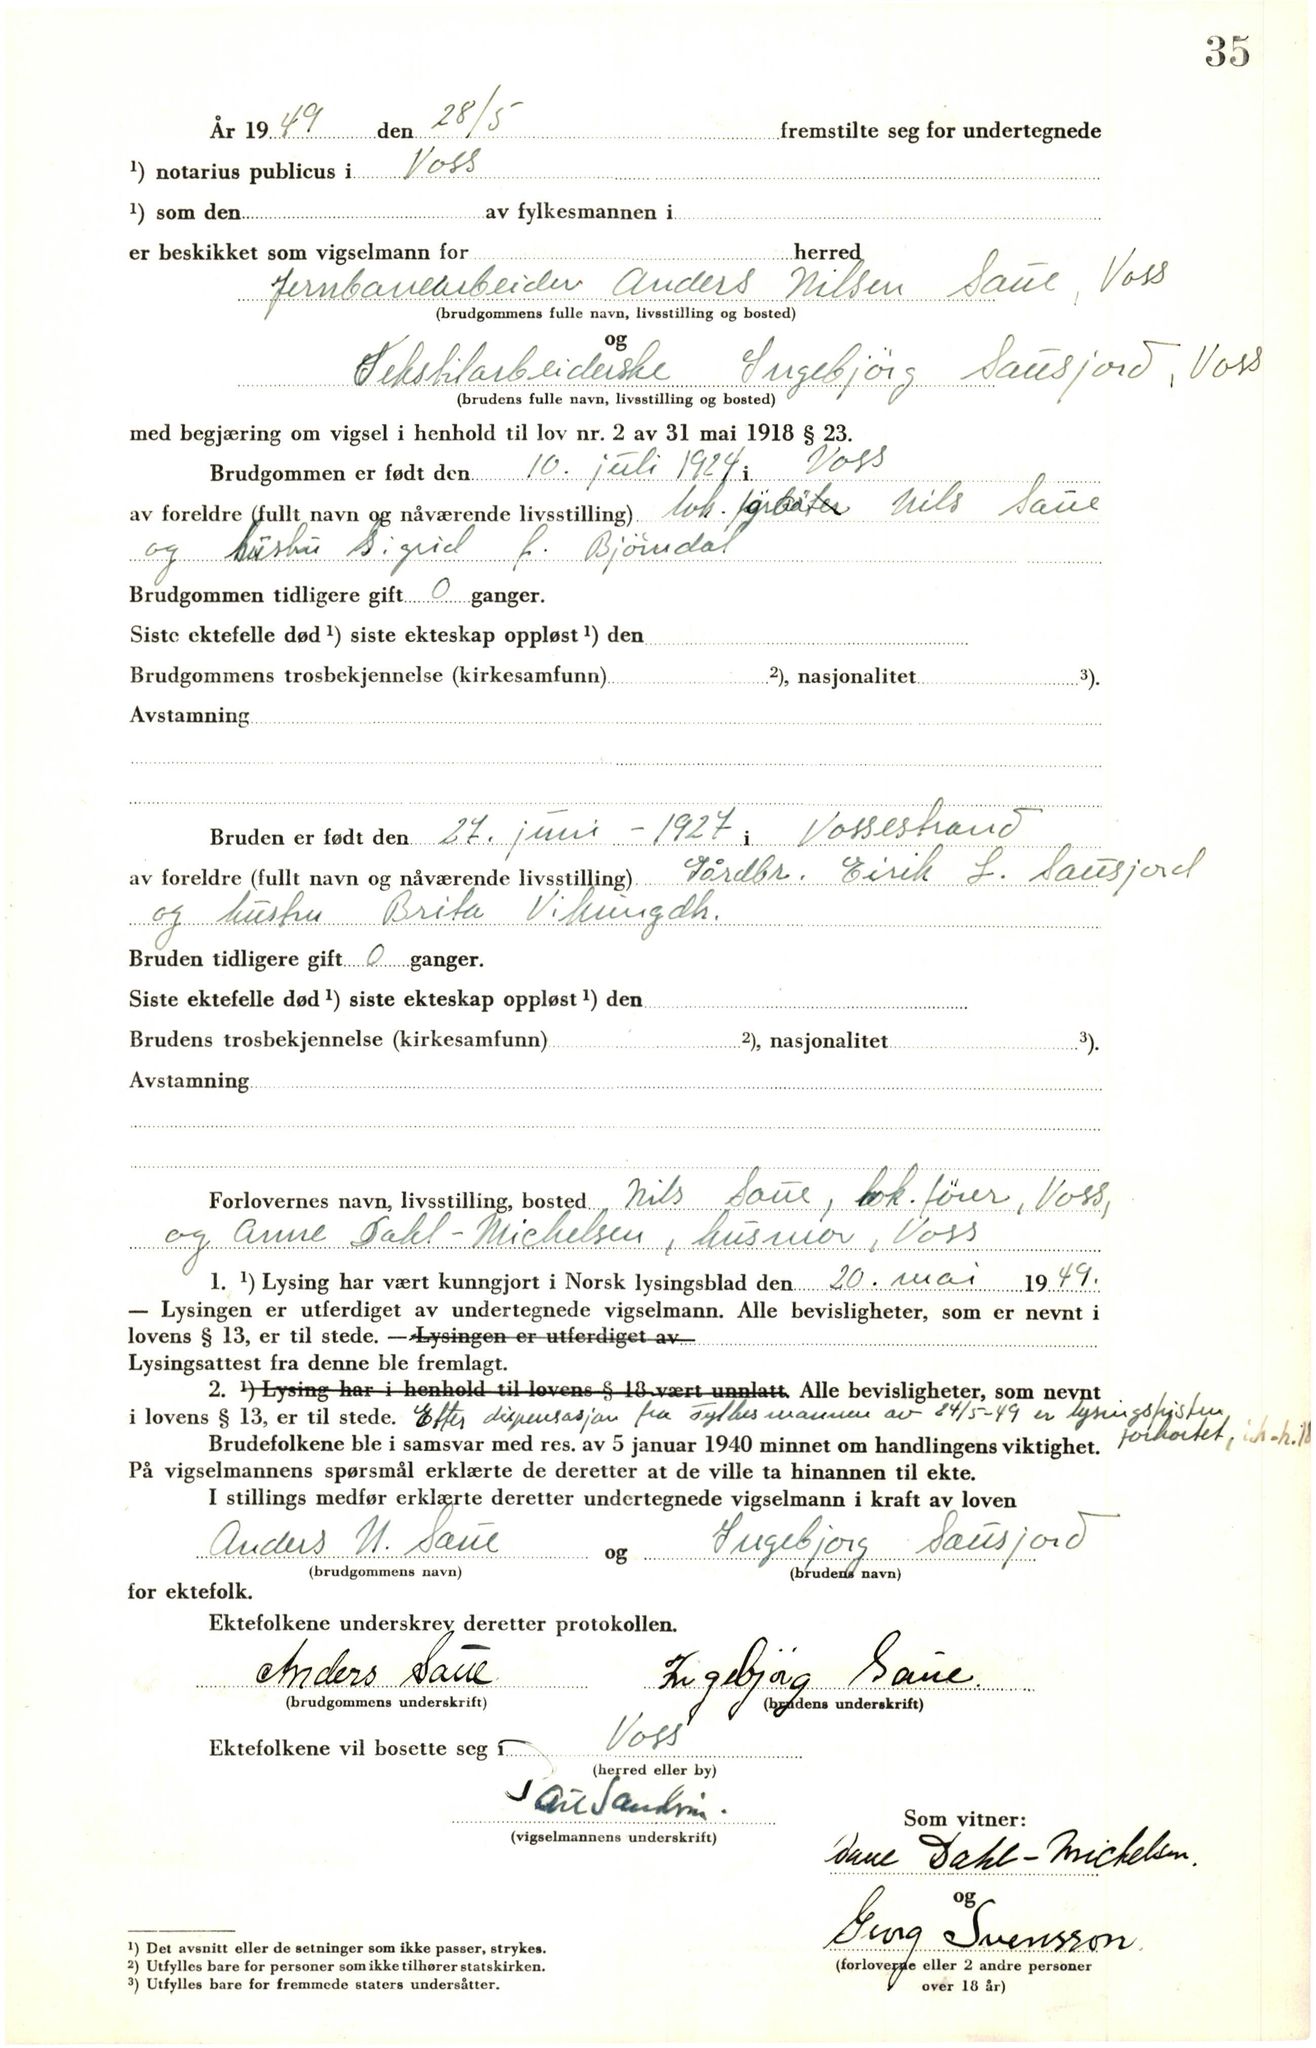 35
År 1949 den 28/5 fremstilte seg for undertegnede
¹) notarius publicus i Voss
¹) som den av fylkesmannen i
er beskikket som vigselmann for herred
Jernbanearbeider Anders Nilsen Saue, Voss
(brudgommens fulle navn, livsstilling og bosted)
og
Tekstilarbeiderske Ingebjörg Sausjord, Voss
(brudens fulle navn, livsstilling og bosted)
med begjæring om vigsel i henhold til lov nr. 2 av 31 mai 1918 § 23.
Brudgommen er født den 10. juli 1924 i Voss
av foreldre (fullt navn og nåværende livsstilling) lok. Nils Saue
og hustru Sigrid f. Björndal
Brudgommen tidligere gift 0 ganger.
Siste ektefelle død ¹) siste ekteskap oppløst ¹) den
Brudgommens trosbekjennelse (kirkesamfunn) ²), nasjonalitet ³).
Avstamning
Bruden er født den 27. juni - 1927 i Vossestrand
av foreldre (fullt navn og nåværende livsstilling) Gårdbr. Eirik L. Sausjord
og hustru Brita Vikingdh.
Bruden tidligere gift 0 ganger.
Siste ektefelle død ¹) siste ekteskap oppløst ¹) den
Brudens trosbekjennelse (kirkesamfunn) ²), nasjonalitet ³).
Avstamning
Forlovernes navn, livsstilling, bosted Nils Saue, lok. förer, Voss,
og Anne Dahl-Michelsen, husmor, Voss
1. ¹) Lysing har vært kunngjort i Norsk lysingsblad den 20. mai 1949.
— Lysingen er utferdiget av undertegnede vigselmann. Alle bevisligheter, som er nevnt i
lovens § 13, er til stede. — Lysingen er utferdiget av
Lysingsattest fra denne ble fremlagt.
2. ¹) Lysing har i henhold til lovens § 18 vært unnlatt. Alle bevisligheter, som nevnt
i lovens § 13, er til stede. Efter dispensasjon fra Fylkesmannen av 24/5-49 er lysingsfristen
forkortet,
Brudefolkene ble i samsvar med res. av 5 januar 1940 minnet om handlingens viktighet.
På vigselmannens spørsmål erklærte de deretter at de ville ta hinannen til ekte.
I stillings medfør erklærte deretter undertegnede vigselmann i kraft av loven
Anders N. Saue og Ingebjorg Sausjord
(brudgommens navn) (brudens navn)
for ektefolk.
Ektefolkene underskrev deretter protokollen.
Anders Saue Ingebjörg Saue.
(brudgommens underskrift) (brudens underskrift)
Ektefolkene vil bosette seg i Voss
(herred eller by)
Sandvin.
(vigselmannens underskrift)
Som vitner:
Dahl-Michelsen.
og
Georg Svensson.
(forloverne eller 2 andre personer
over 18 år)
¹) Det avsnitt eller de setninger som ikke passer, strykes.
²) Utfylles bare for personer som ikke tilhører statskirken.
³) Utfylles bare for fremmede staters undersåtter.